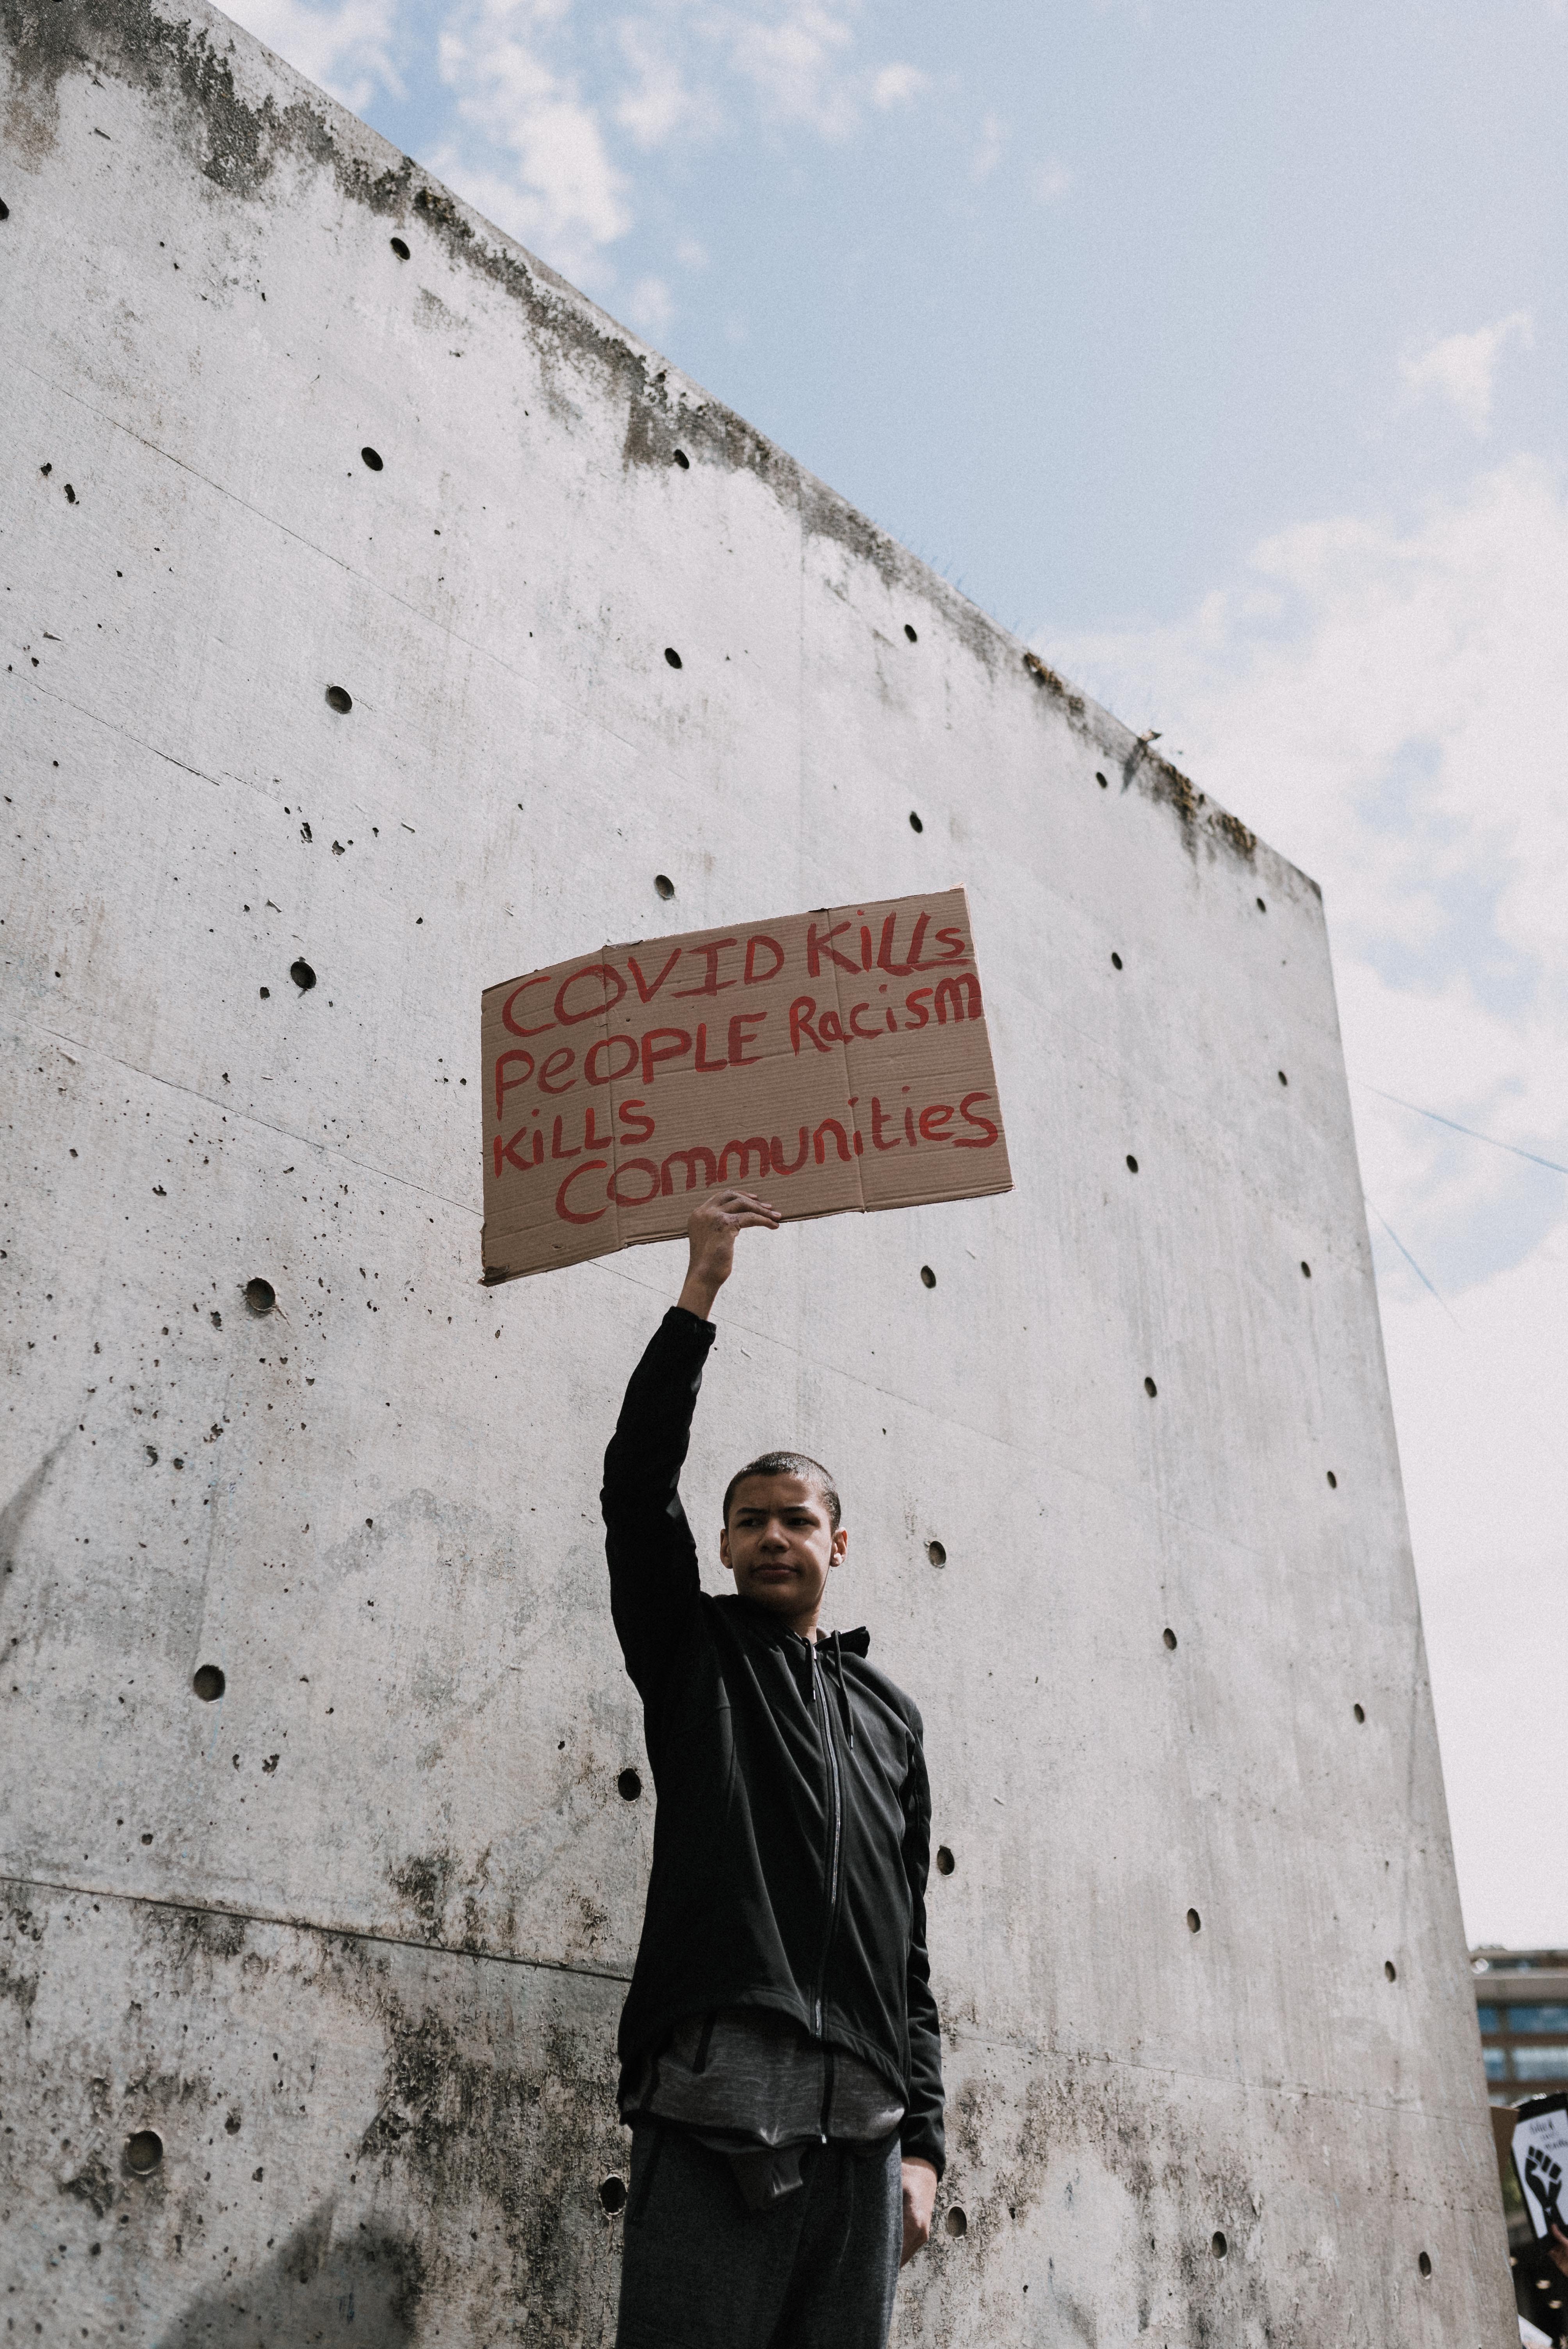 COVID Kills
PeOPLE Racism
KiLLS
Communities